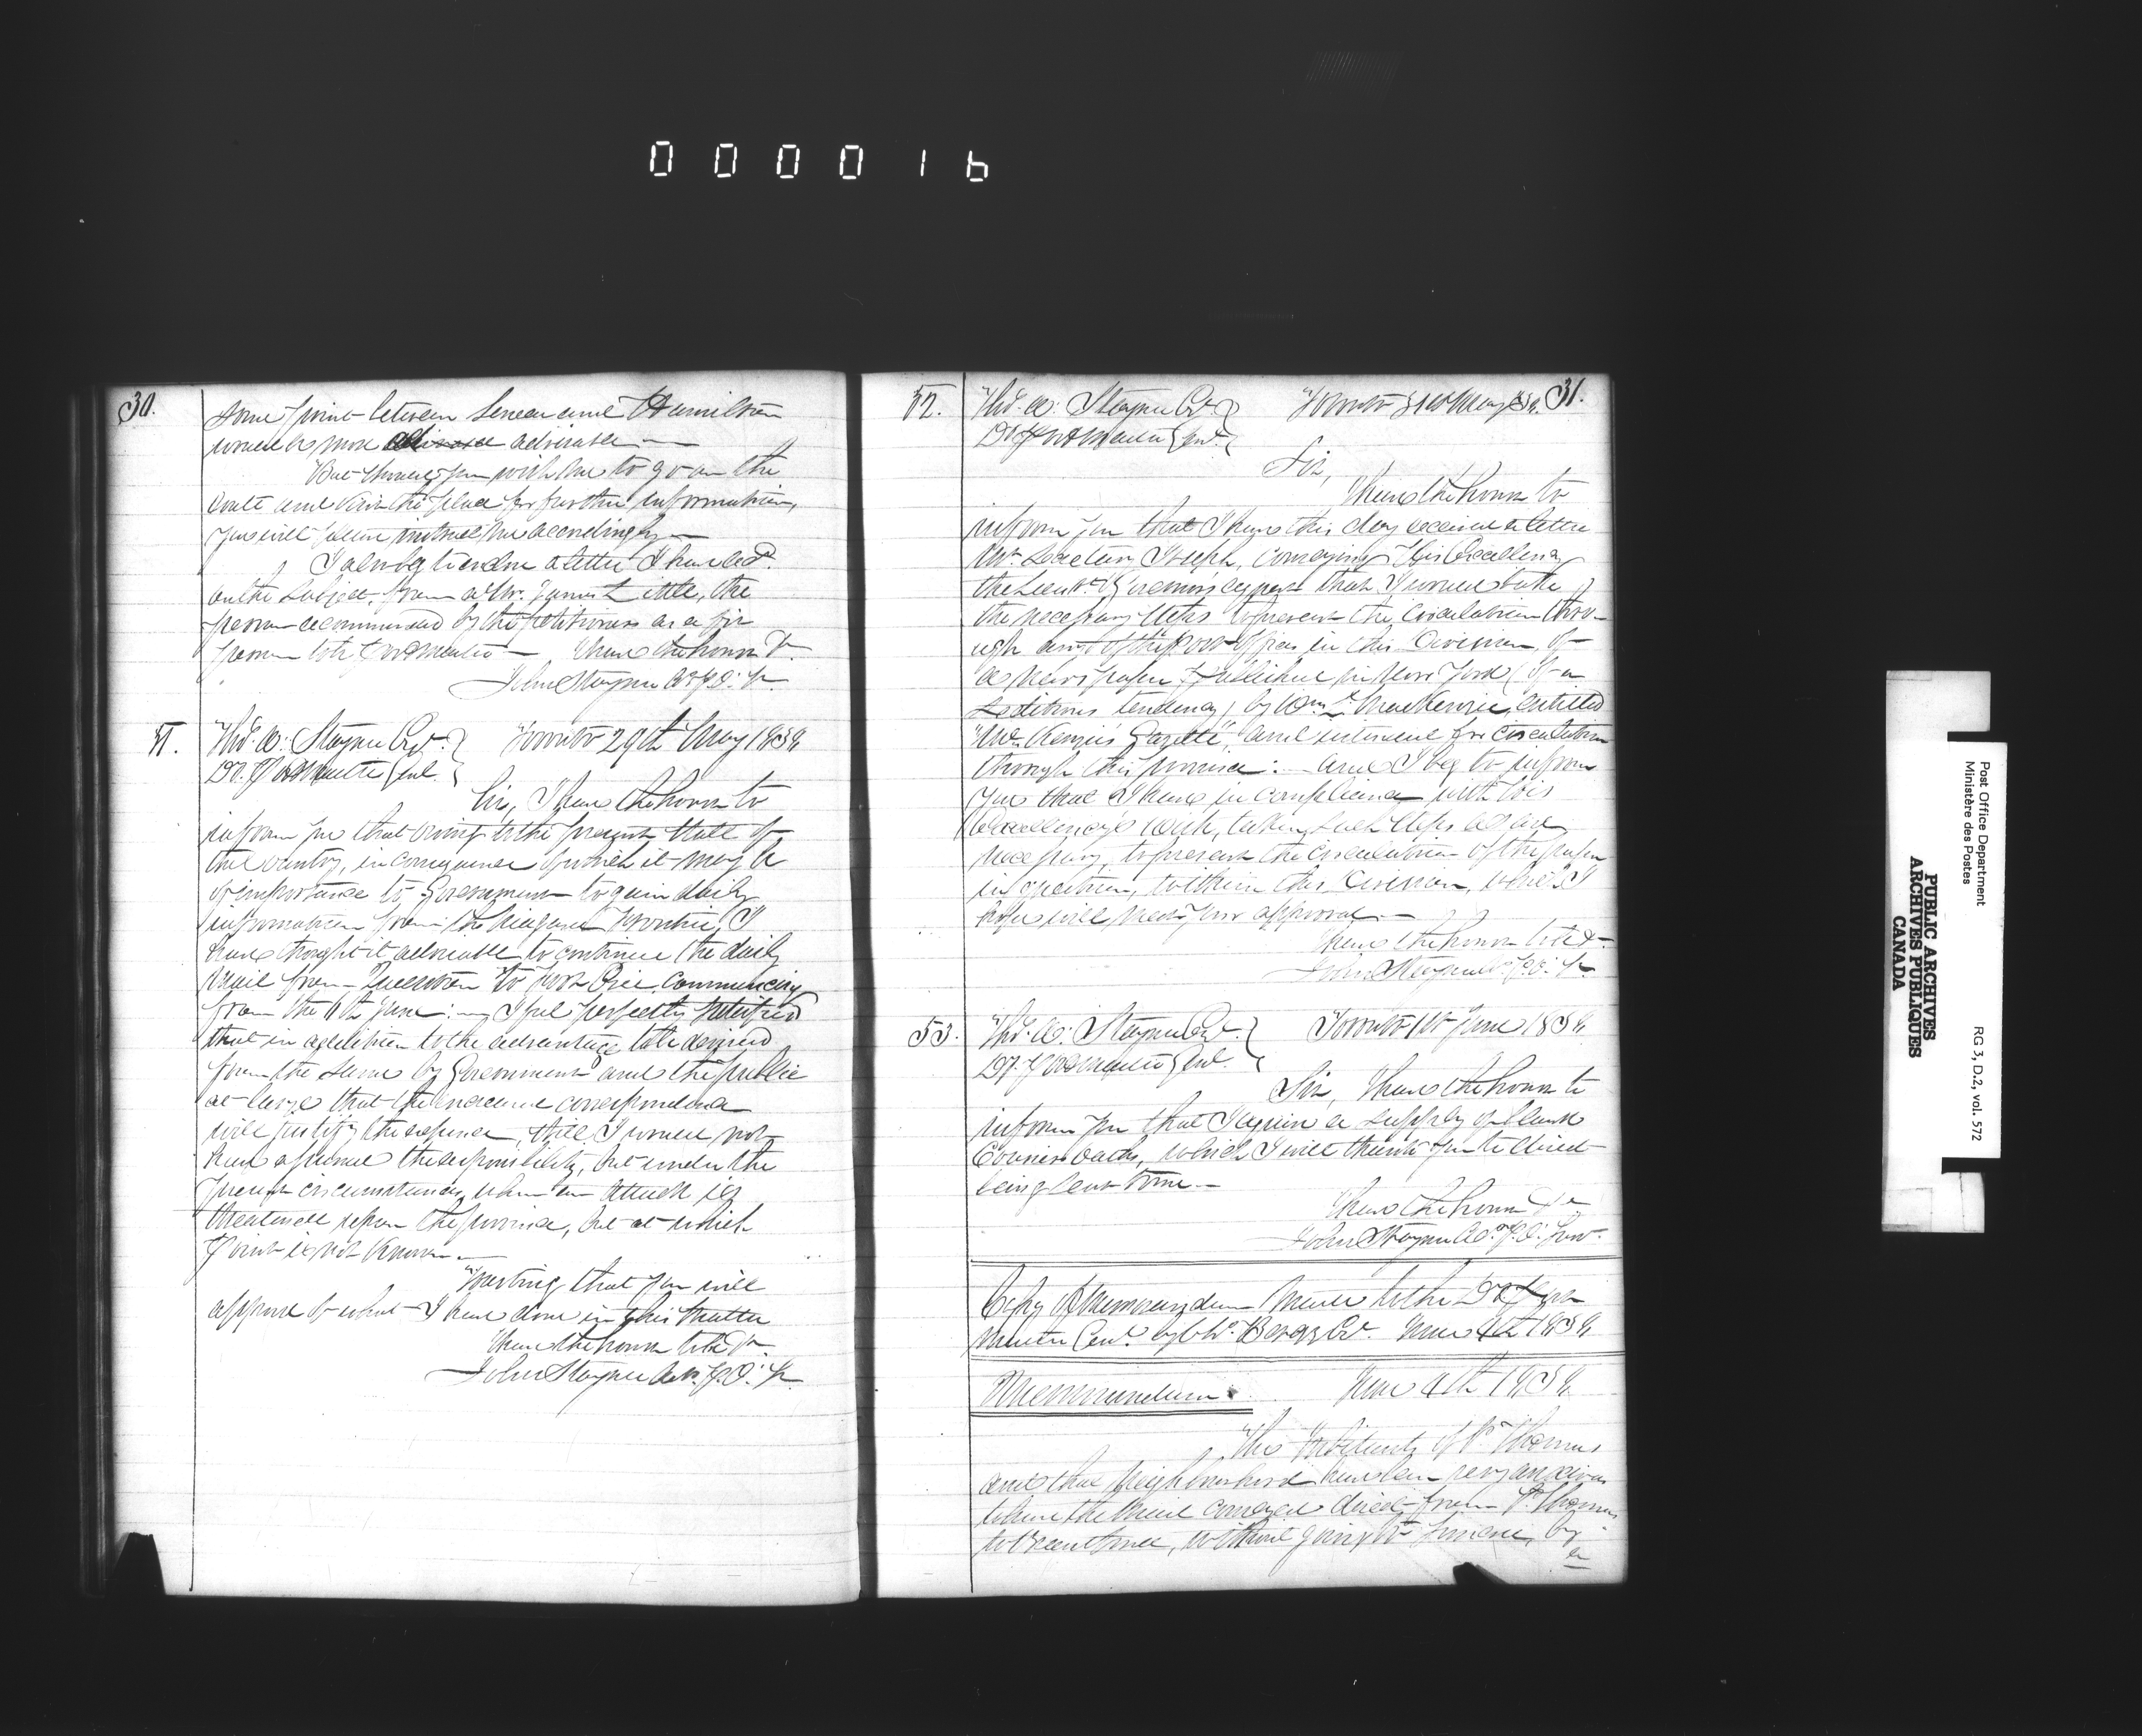 000016
30.
some point between Seneca and Hamilton
would be more advisable
But should you wish me to go on the
route and visit the place for further information,
you will please instruct me accordingly
I also beg to endose a letter I have recd.
on the subject, from a Mr. James Little, the
person recommended by the petitioners as a fit
person to be Postmaster — I have the honor &c.
John Stayner
51.
Stayner Toronto 29th May 1838
Dy. Postmaster Genl.
Sir, I have the honor to
inform you that owing to the present state of
the Country, in consequence of which it may be
of importance to Government to gain daily
information from the Niagara frontier, I
have thought it advisable to continue the daily
mail from Queenston to Fort Erie commencing
from the June: I feel perfectly satisfied
that in addition to the advantage to be derived
from the same by Government and the public
at large that the increased correspondence
will justify the expense, still I would not
have assumed the responsibility, but under the
present circumstances when an attack is
threatened upon the province, but at which
point is not known
Trusting that you will
approve of what I have done in this matter
I have the honor to be &c.
John Stayner
31.
52. Stayner Toronto 31st May 1838
Dy. Postmaster Genl.
Sir,
I have the honor to
inform you that I have this day received a letter
Mr. Secretary Joseph, conveying His Excellency
the Lieut. Governor's that I would take
the necessary steps to prevent the circulation thro-
ugh any of the post offices in this Division of
a newspaper published in New York (of a
seditious tendency) by Wm. L. MacKenzie, entitled
"McKenzie's Gazette", and intended for circulation
through this province: and I beg to inform
you that I have in compliance with His
Excellency's wish, taken such steps as are
necessary, to prevent the circulation of the paper
in question, within this Division, which I
hope will meet your approval.—
I have the honor to be &c.
John Stayner
53. Stayner Toronto 1st June 1838
Dy. Postmaster Genl.
Sir, I have the honor to
inform you that I require a supply of blank
Couriers oaths, which I will thank you to direct
being sent to me.—
I have the honor &c
John Stayner
Copy of Memorandum to the Dy Post
master Genl. by June 4th 1838
Memorandum. June 4th 1838
The Inhabitants of St. Thomas
and that neighbourhood have been very anxious
to have the Mail conveyed direct from St. Thomas
to Brantford, without going to by
a
Post Office Department
Ministère des Postes
RG 3, D.2, vol. 572
PUBLIC ARCHIVES
ARCHIVES PUBLIQUES
CANADA